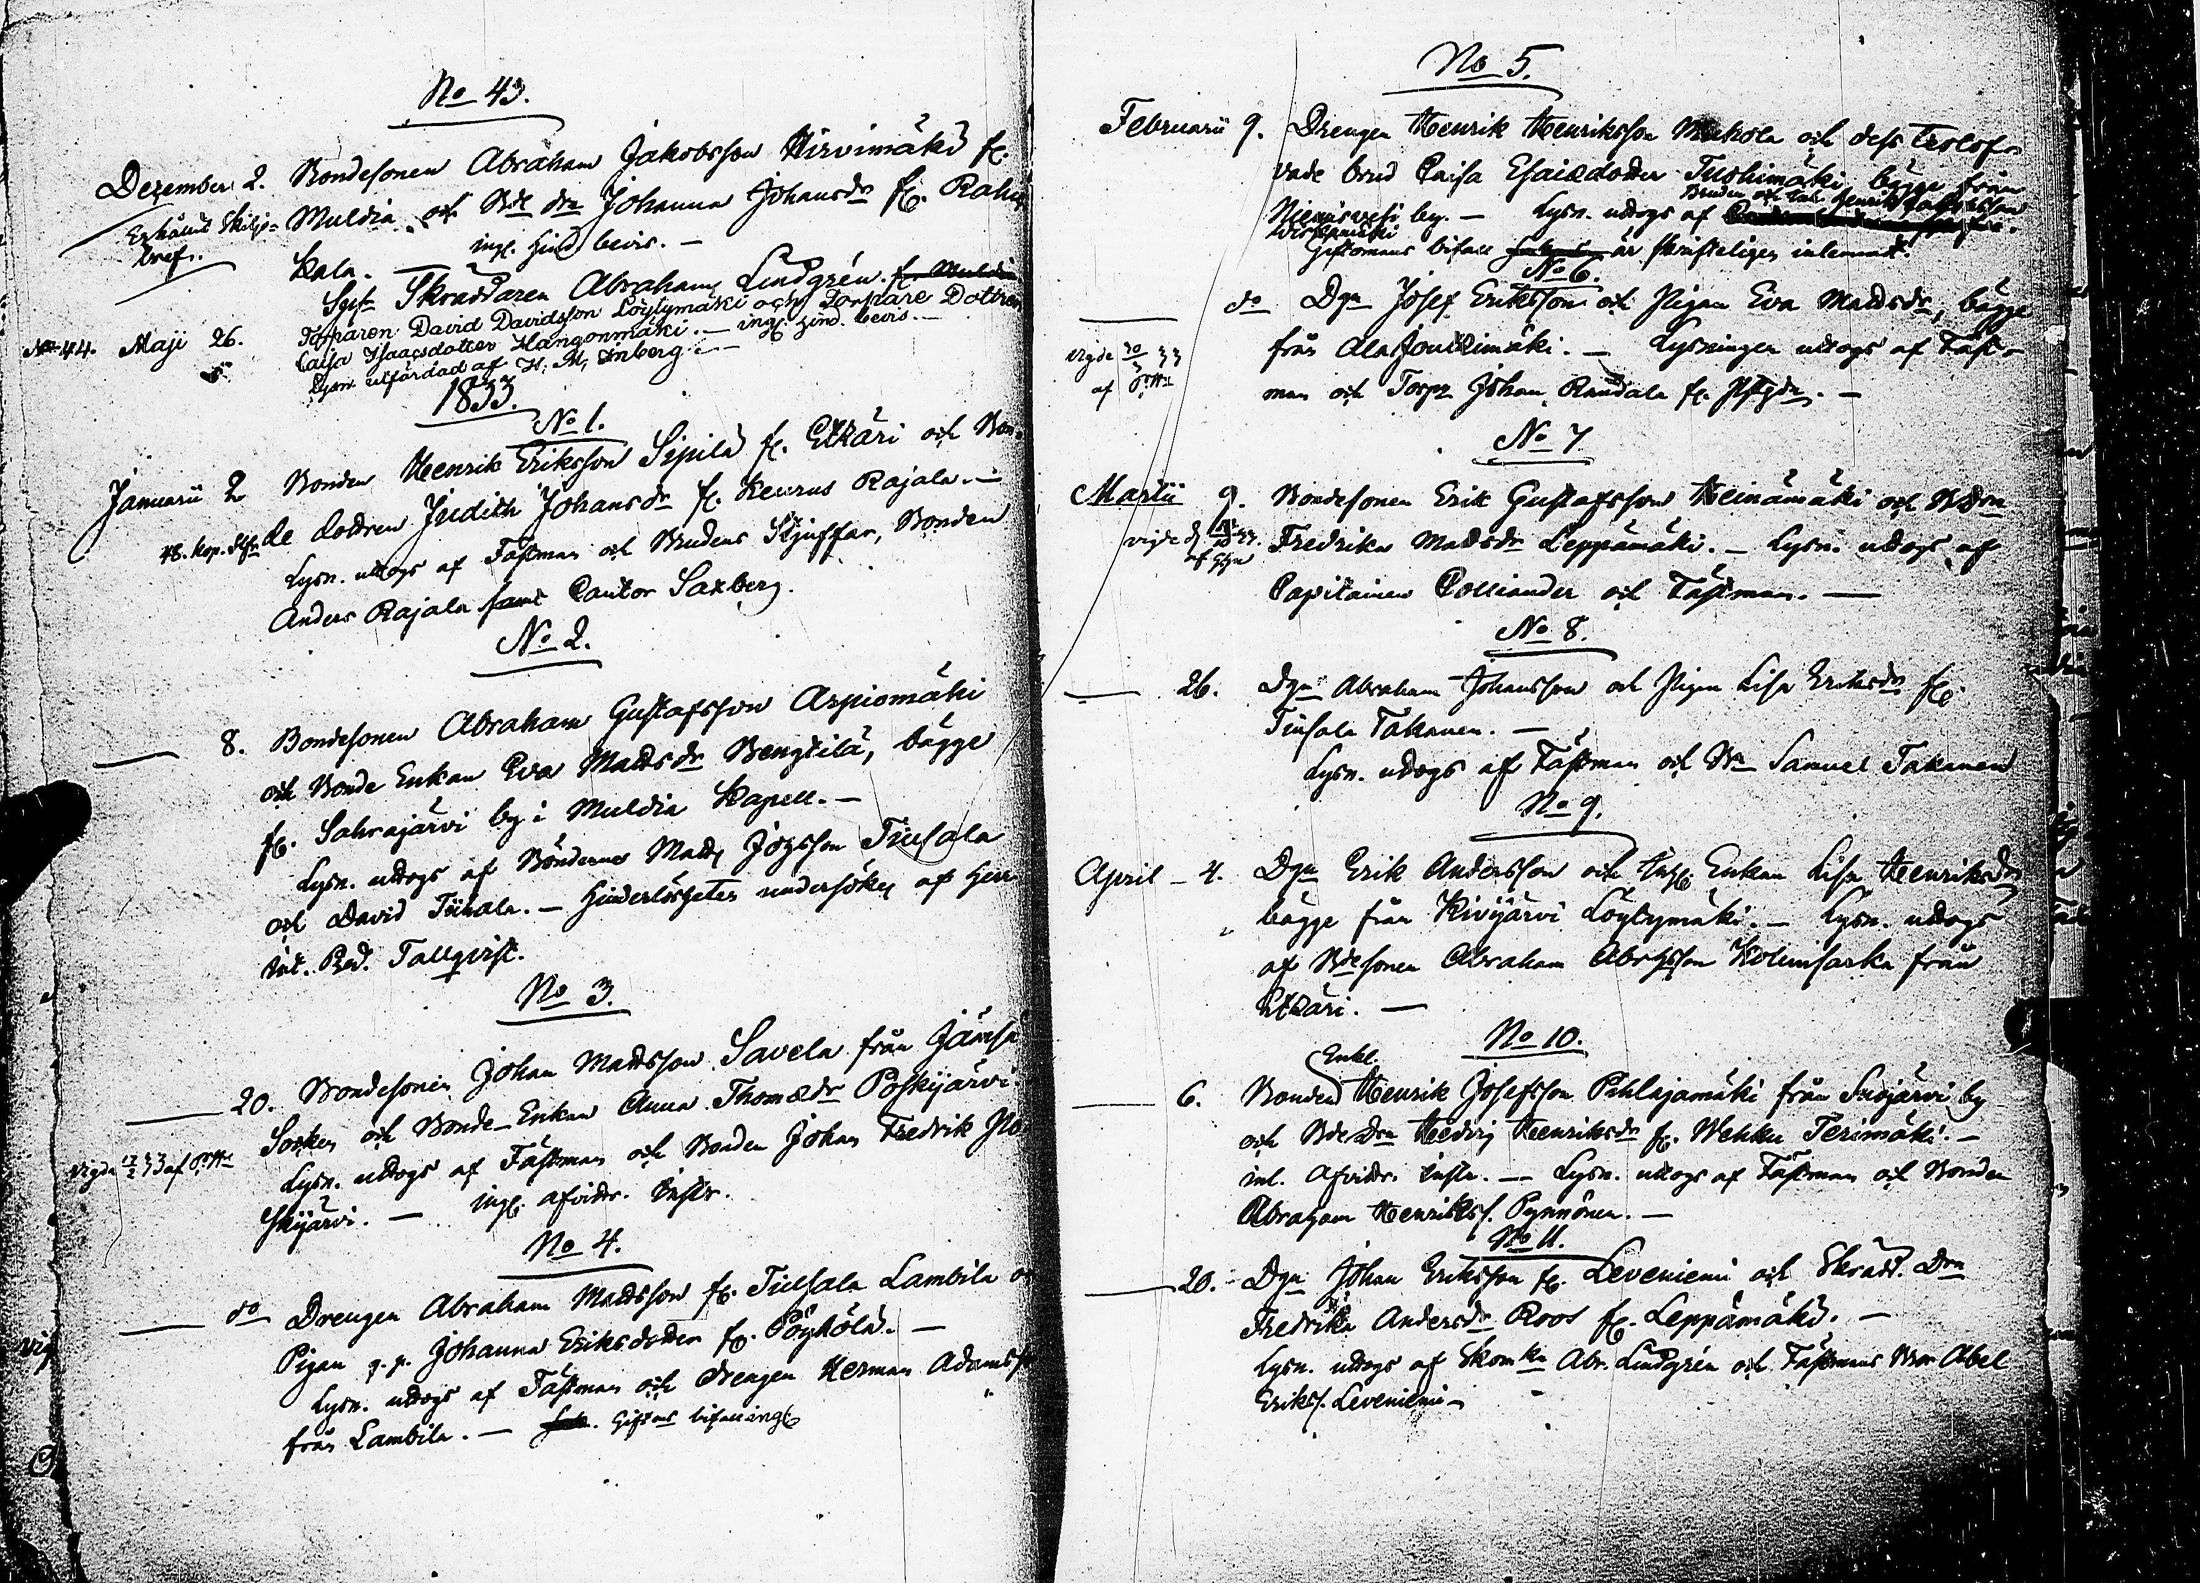 No 43.
Dezember 2. Bondesonen Abraham Jakobsson Hirvimäki fr.
Erhållit Skiljo- Muldia och Bde drn Johanna Johansdr fr. Rahi
bref. kala. — ingl. hind. bevis. —
Sgs Skräddaren Abraham Lindgrén fr. Muldia
No 44. Maji 26. Torparen David Davidsson Löytymäki och Torpare Dottren
Caisa Isaacsdotter Hangonmäki. — ingl. hind. bevis. —
Lysn. utfärdad af H. M. Inberg. —
1833.
No 1.
Januarii 2 Bonden Henrik Eriksson Sipilä fr. Etzäri och Bon-
de dottren Judith Johansdr fr. Keurus Rajala. —
Lysn. uttogs af Fästman och Brudens Skjuffar, Bonden
Anders Rajala samt Cantor Saxberg.
No 2.
8. Bondesonen Abraham Gustafsson Arpiomäki
och Bonde Enkan Eva Mattsdr Bengtilä, bägge
fr. Sahrajärvi by i Muldia Kapell. —
Lysn. uttogs af Bönderne Matts Jözsson Tiusala
och David Tiihala. — Hinderlösheten undersökes af Herr
Pred. Tallqvist.
No 3.
20. Bondesonen Johan Mattsson Savela från Jämsä
Socken och Bonde-Enkan Anna Thomædr Poskijärvi
vigda 17/2 33 af Lysn. uttogs af Fästman och Bonden Johan Fredrik Po
skijärvi. — ingl. afvittr. Instr.
No 4.
do Drengen Abraham Mattsson fr. Tiusala Lambila o
Pigan q. p. Johanna Eriksdotter fr. Pöyhölä. —
Lysn. uttogs af Fästman och Drengen Herman Adamss
från Lambila. — Giftms bifall ingl.
No 5.
Februarii 9. Drengen Henrik Henriksson Mukola och dess trolof-
vade brud Caisa Esaiædotter Tuohimäki, bägge från
Niemisvesi by. — Lysn. uttogs af Bruden och
Giftomans bifall är skrifteligen inlemnat.
No 6.
do Dgn Josef Eriksson och Pigan Eva Mattsdr, bägge
vigde 30/3 33 från Alastouttimäki. — Lysningen uttogs af Fäst-
af man och Torpr Johan Randala fr. —
No 7.
Martii 9. Bondesonen Erik Gustafsson Heinämäki och Bdrn
vigde Fredrika Mattsdr Leppämäki. — Lysn. uttogs af
Capitainen Colliander och Fästman. —
No 8.
26. Dgn Abraham Johansson och Pigan Lisa Eriksdr fr.
Tiusala Takanen. —
Lysn. uttogs af Fästman och Bn Samuel Takanen
No 9.
April – 4. Dgn Erik Andersson och Enkan Lisa Henriksdr
bägge från Kivijärvi Löytymäki. — Lysn. uttogs
af Bdesonen Abraham Abrhsson Kolunsarka från
Etzäri. —
No 10.
Enkl.
6. Bonden Henrik Josefsson Pihlajamäki från Suojärvi by
och Bde Drn Hedvig Henriksdr fr. Wehku Terimäki. —
inl. Afvittr. Instr. — Lysn. uttogs af Fästman och Bonden
Abraham Henrikss. Pynnönen. —
No 11.
20. Dgn Johan Eriksson fr. Leveniemi och Skrädd. Drn
Fredrika Andersdr Roos fr. Leppämäki. —
Lysn. uttogs af Skomkn Abr. Lindgrén och Fästmans Bror Abel
Erikss. Leveniemi —